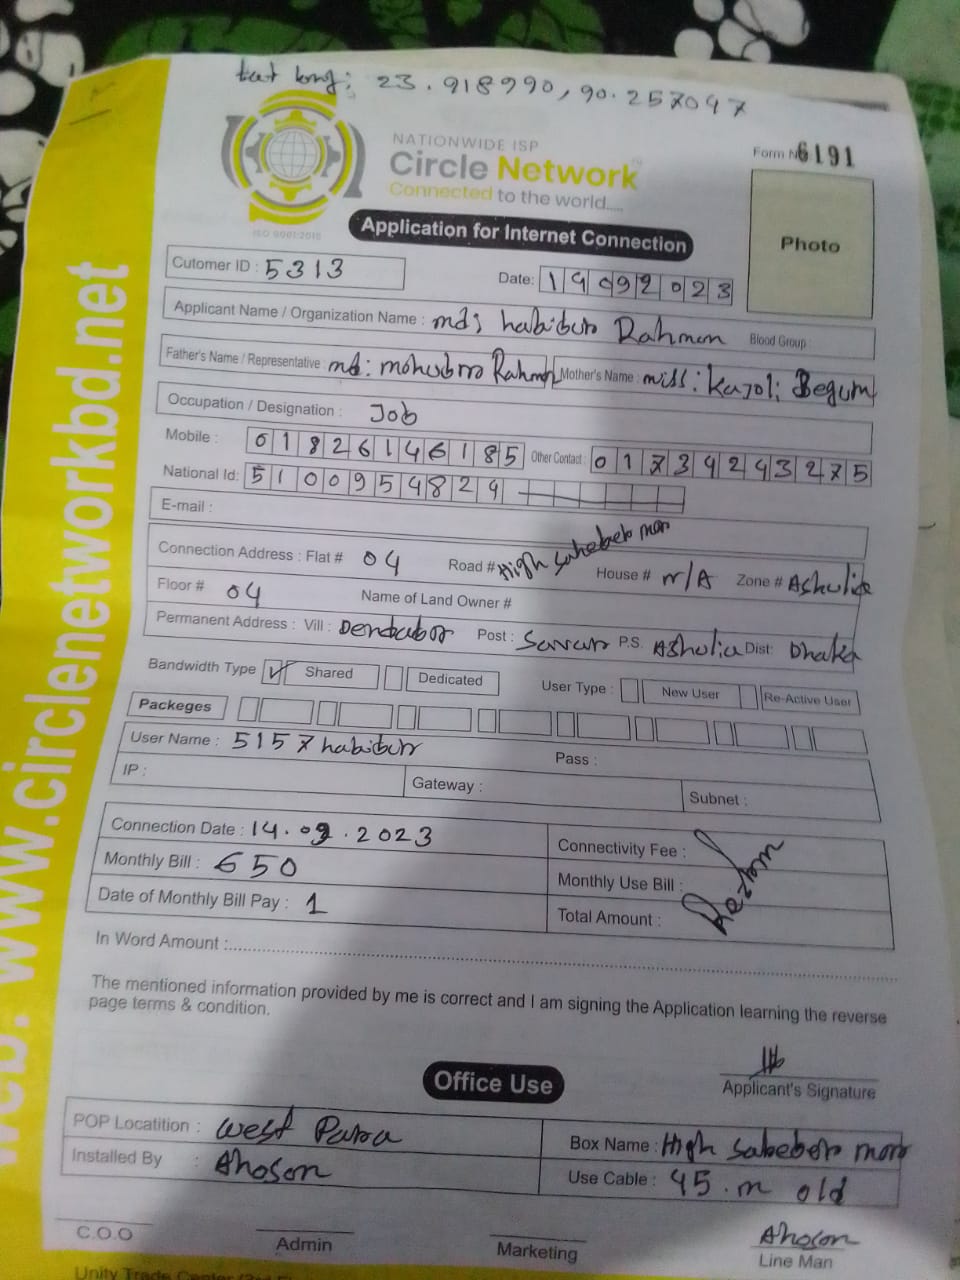 Lat long: 23.918990, 90.257047
NATIONWIDE ISP
Circle Network
Connected to the world.....
ISO 9001:2015
Form N 6191
Photo
Application for Internet Connection
Cutomer ID : 5313
Date: 14092023
Applicant Name / Organization Name : md: habibur Rahman Blood Group :
Father's Name / Representative : md: mohubro Rahman Mother's Name : miss: Kajoli Begum
Occupation / Designation : Job
Mobile : 01826146185 Other Contact : 01734243275
National Id: 5100954824
E-mail :
Connection Address : Flat # 04 Road # High saheber mor House # N/A Zone # Ashulia
Floor # 04 Name of Land Owner #
Permanent Address : Vill : Dendabor Post : Savar P.S. Ashulia Dist: Dhaka
Bandwidth Type ✓ Shared Dedicated User Type : New User Re-Active User
Packeges
User Name : 5157habibur Pass :
IP : Gateway : Subnet :
Connection Date : 14.09.2023 Connectivity Fee :
Monthly Bill : 650 Monthly Use Bill :
Date of Monthly Bill Pay : 1 Total Amount :
In Word Amount :
The mentioned information provided by me is correct and I am signing the Application learning the reverse
page terms & condition.
Applicant's Signature
Office Use
POP Locatition : West Para Box Name : High sabeber mor
Installed By : Ahoson Use Cable : 45.m old
C.O.O Admin Marketing Ahoson
Line Man
www.circlenetworkbd.net